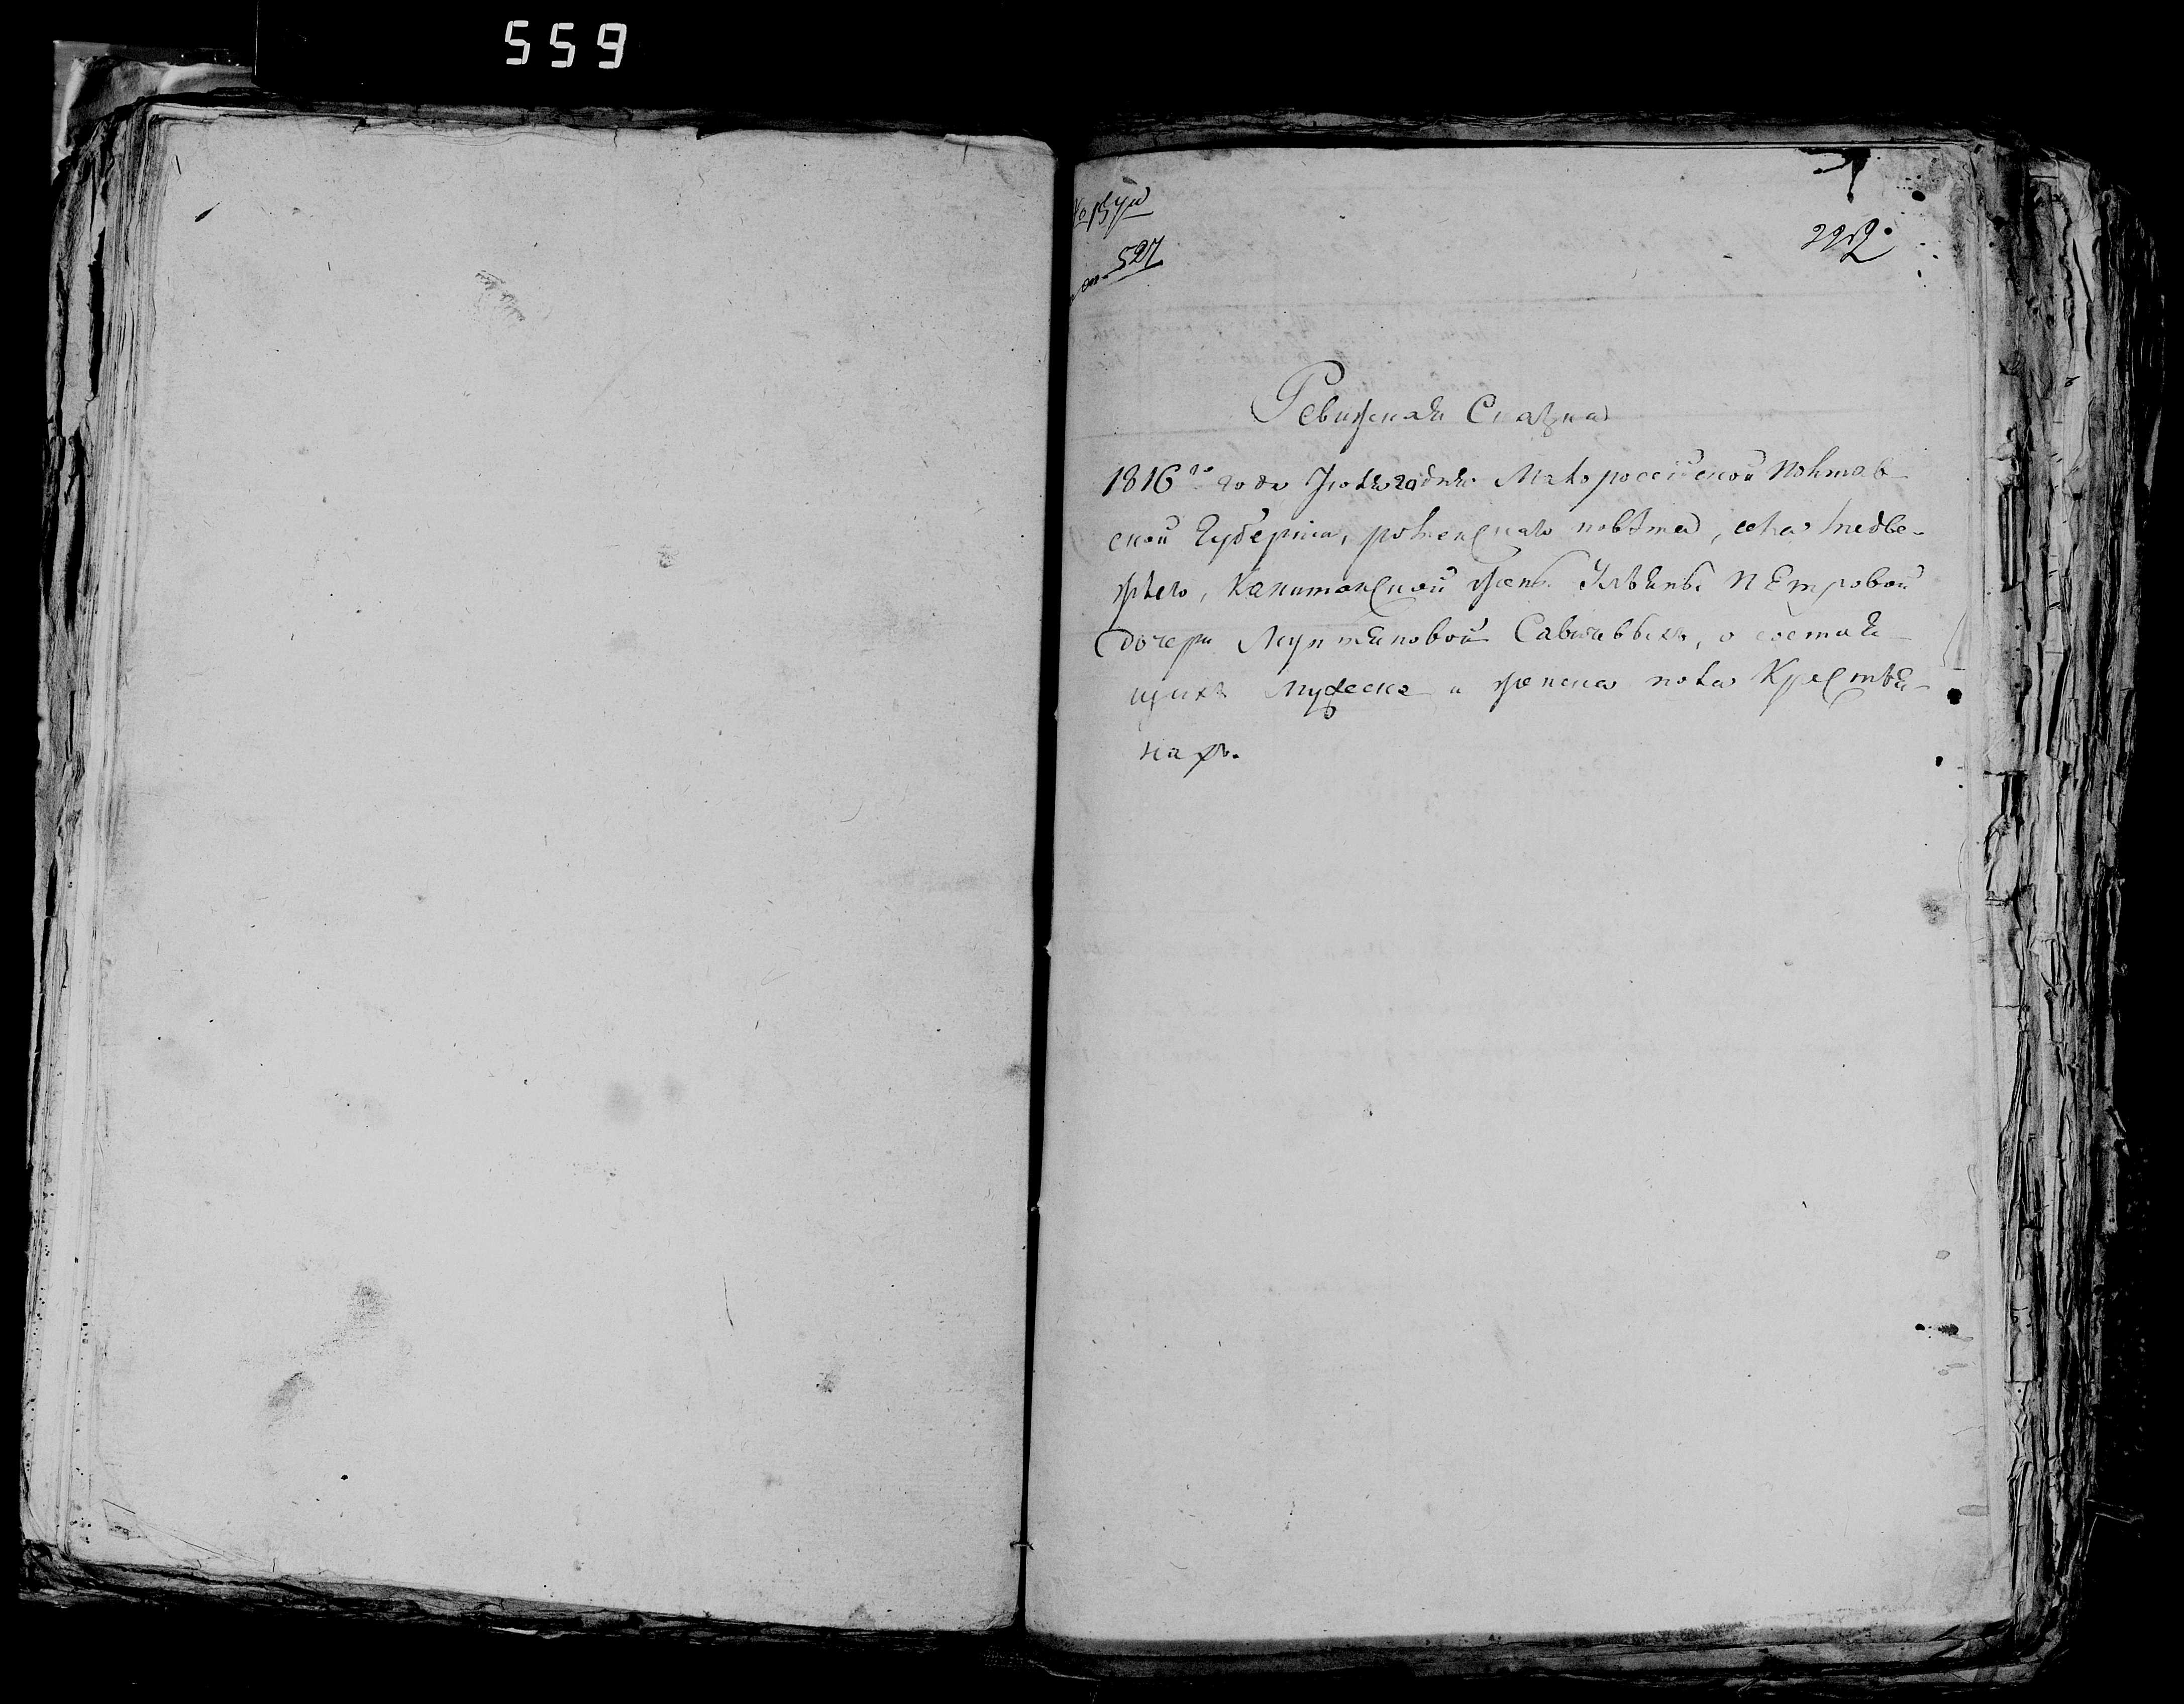 559
527
Ревизская Сказка
1816го года Июля 20 дня Малороссійской Полтав-
ской Губерніи, роменскаго повѣта, села медве-
жьего, Капитанской жены Ульяны Петровой
дочери Савичевыхъ, о состоя
щихъ Мужеска и женска пола Крестья-
нахъ.